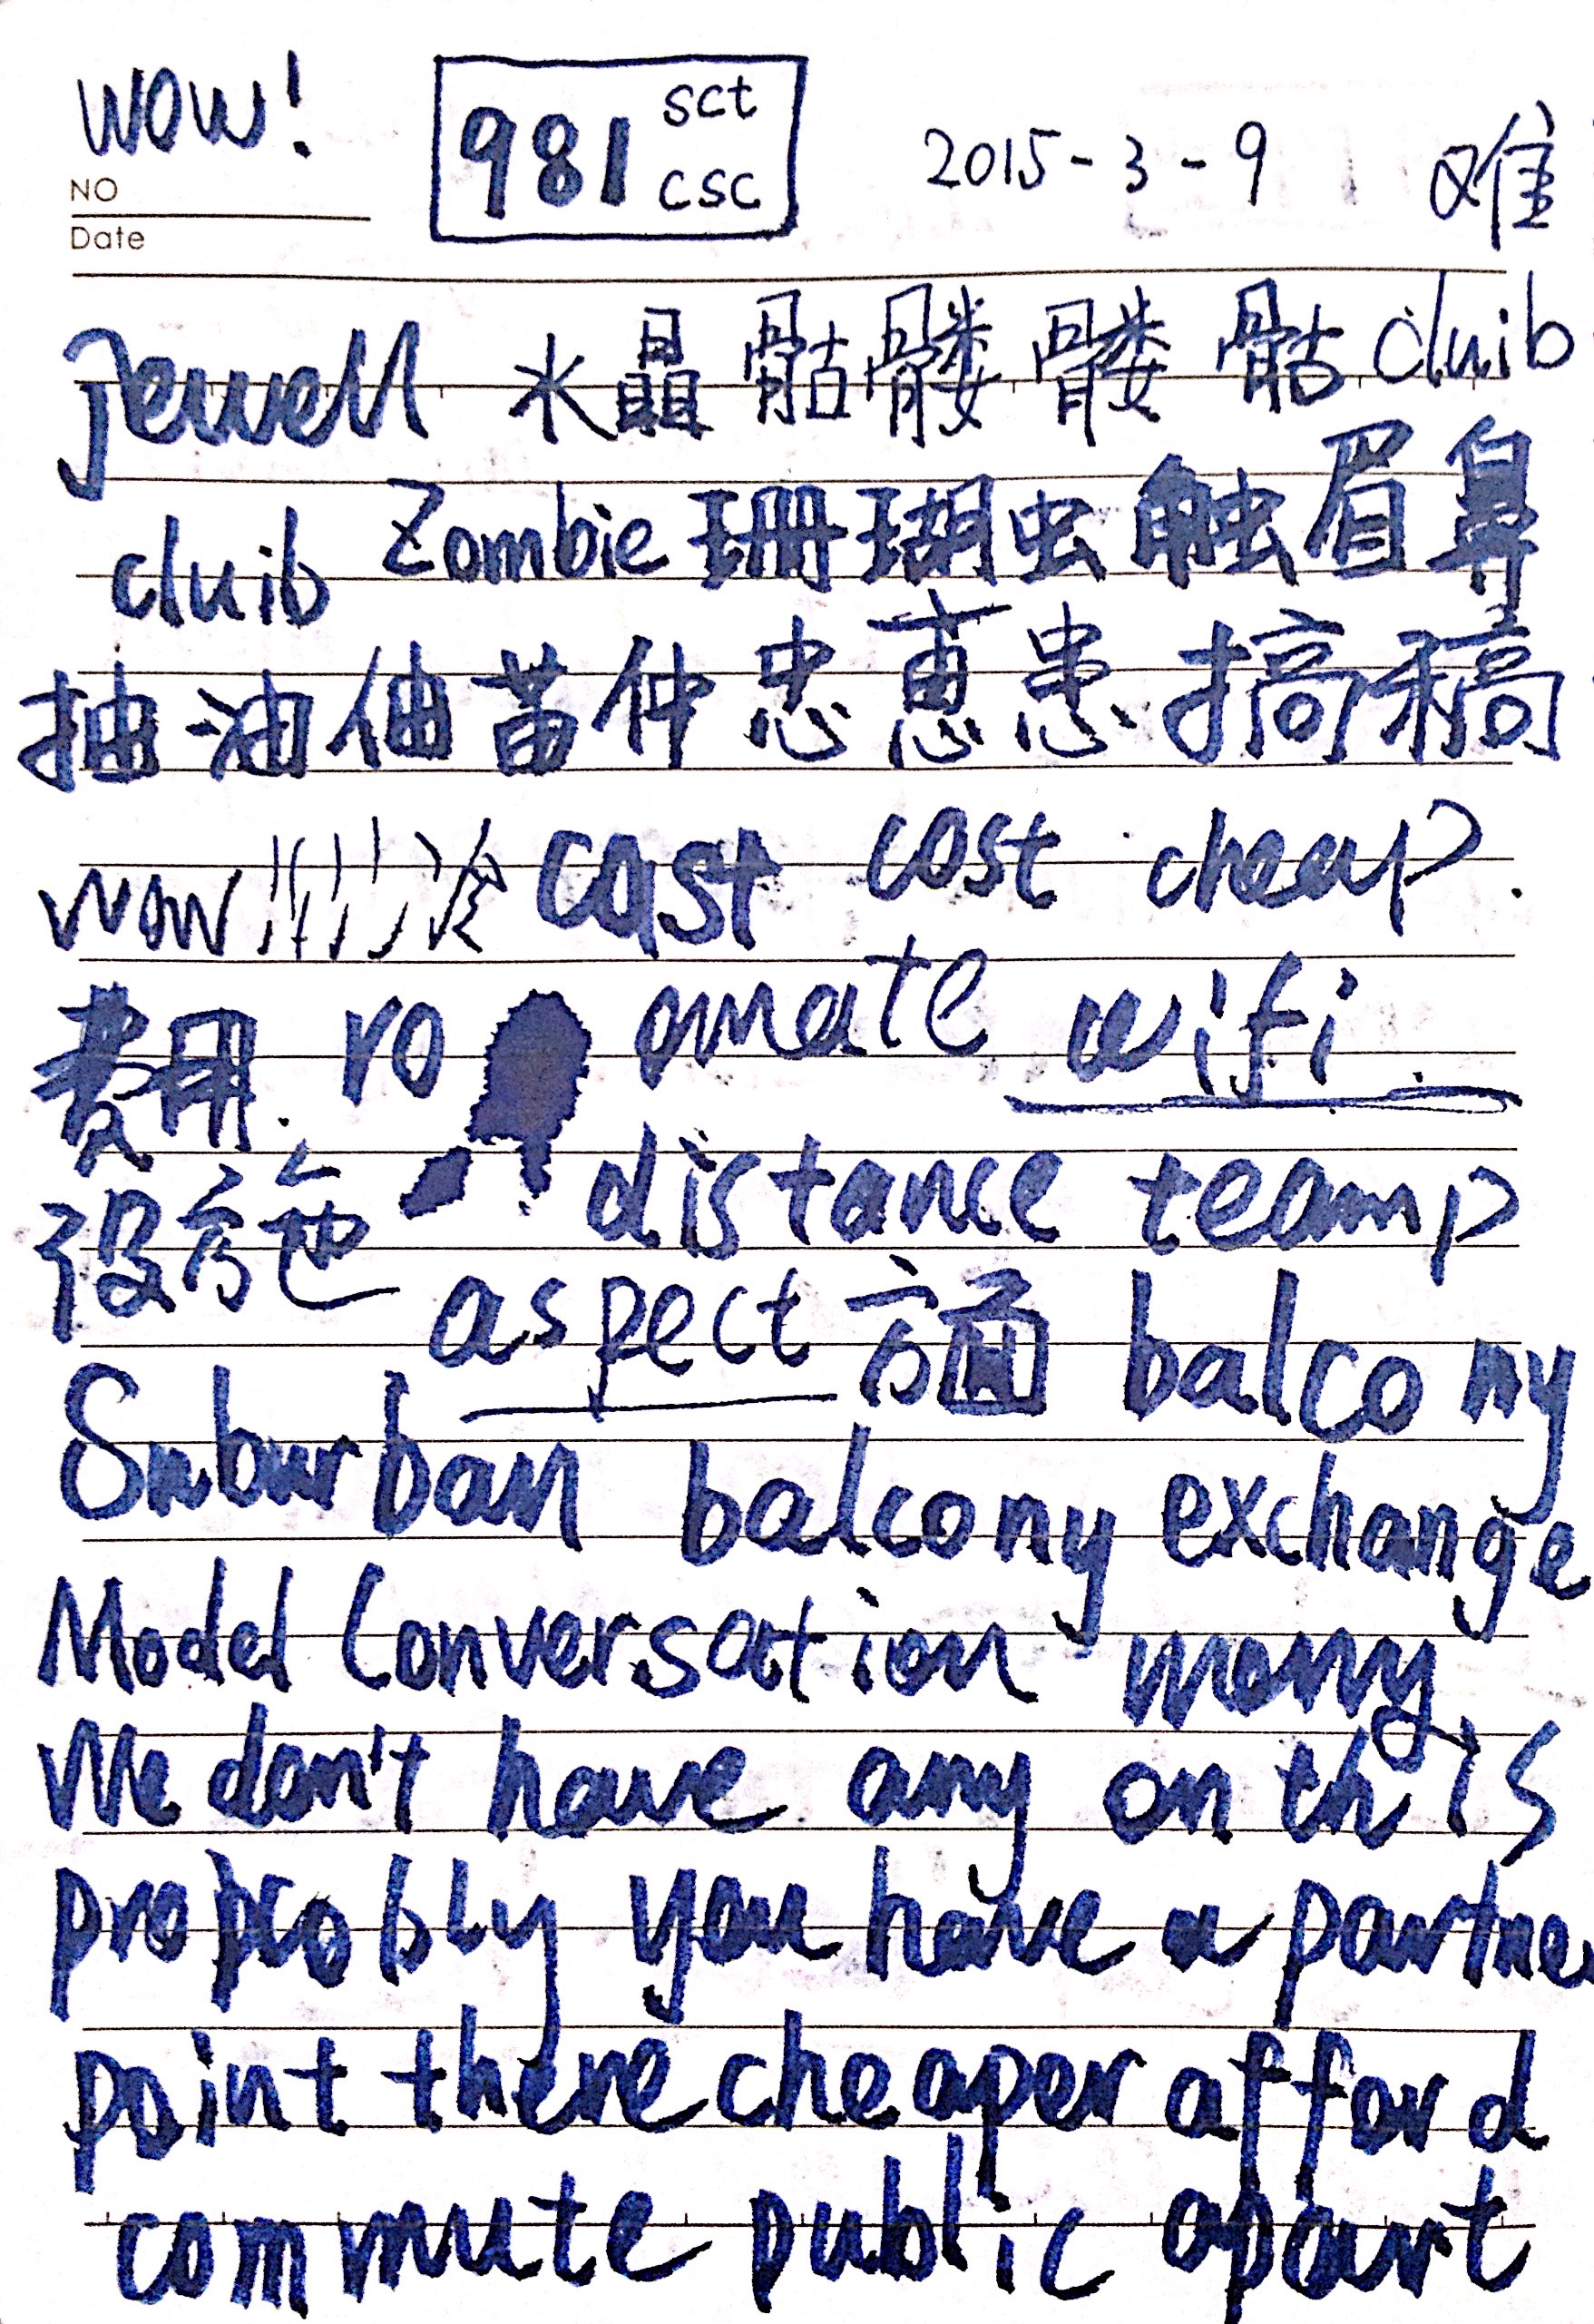 wow! 981 sct
csc 2015-3-9 难
NO
Date
Jewell 水晶 骷髅 髅 骷 cluib
cluib Zombie 珊瑚虫 触 眉 鼻
抽 油 伷 苗 仲 忠 惠 患 搞 稿
wow cast cost cheap.
费用. ro omate wifi
设施 distance teamp
aspect 方面 balcony
Suburban balcony exchange
Model Conversation
We don't have any on this
you have a partne
point there cheaper afford
commute public apart